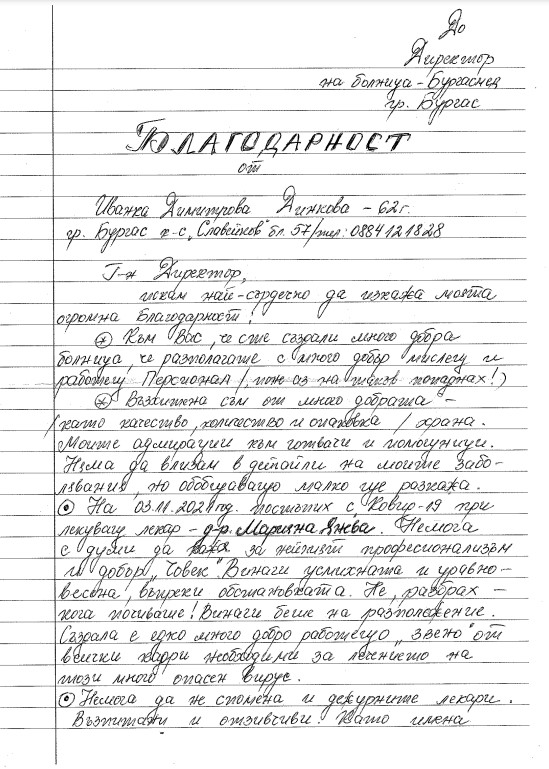 До
Директор
на болница - Бургасмед
гр. Бургас
БЛАГОДАРНОСТ
от
Иванка Димитрова Динкова - 62 г.
гр. Бургас к-с „Славейков" бл. 57/тел: 0884121828
Г-н Директор,
искам най-сърдечно да изкажа моята
огромна Благодарност!
Към Вас, че сте създали много добра
болница, че разполагате с много добър мислещ и
работещ Персонал /, пок аз на такъв попаднах!)
Възхитена съм от много добрата -
/като качество, количество и опаковка / храна.
Моите адмирации към готвачи и помощници.
Нема да влизам в детайли на моите забо-
лявания, но обобщаващо малко ще разкажа.
На 03.11.2021 год. постъпих с „Ковид-19 при
лекуващ лекар - д-р. Марияна Янева. Немога
с думи да кажа за нейният професионализъм
и добър „Човек". Винаги усмихната и уравно-
весена, въпреки обстановката. Не, разбрах -
кога почиваше! Винаги беше на разположение.
Създала е едно много добро работещо „звено" от
всички кадри необходими за лечението на
този много опасен вирус.
Немога да не спомена и дежурните лекари.
Възпитани и отзивчиви. Като имена